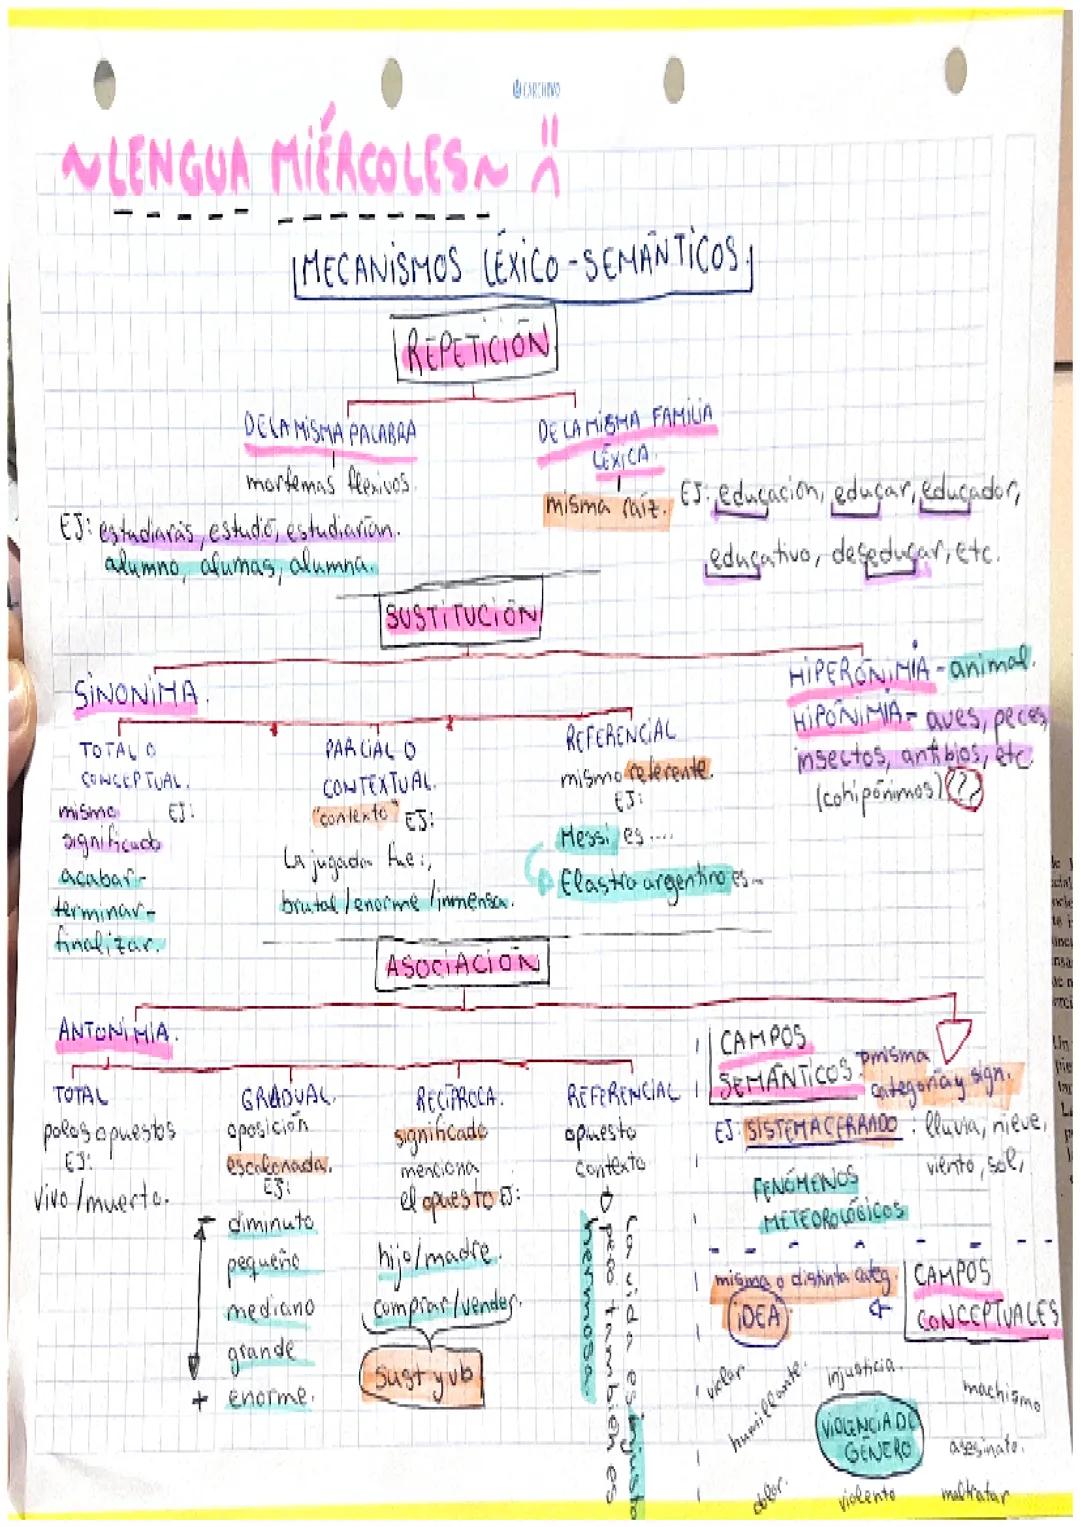 CARCHIVO
~LENGUA MIÉRCOLES~
MECANISMOS LÉXICO-SEMÁNTICOS.
REPETICIÓN
DE LA MISMA PALABRA
morfemas flexivos.
EJ: estudiarás, estudié, estudiarían.
alumno, alumas, alumna.
DE LA MISMA FAMILIA
LÉXICA.
misma raíz.
EJ: educación, educar, educador,
educativo, deseducar, etc.
SUSTITUCIÓN
SINONIMIA.
TOTAL O
CONCEPTUAL.
mismo EJ:
significado
acabar-
terminar-
finalizar.
PARCIAL O
CONTEXTUAL.
"contexto" EJ:
La jugada fue:,
brutal/enorme/inmensa.
REFERENCIAL
mismo referente.
EJ:
Messi es ....
El astro argentino es...
HIPERONIMIA - animal.
HIPONIMIA - aves, peces,
insectos, anfibios, etc.
(cohipónimos) (??)
ASOCIACIÓN
ANTONIMIA.
TOTAL
polos opuestos
EJ:
vivo/muerto.
GRADUAL.
oposición
escalonada.
EJ:
- diminuto
pequeño
mediano
grande
+ enorme.
RECÍPROCA.
significado
menciona
el opuesto EJ:
hijo/madre.
comprar/vender.
sust y vb
REFERENCIAL
opuesto
contexto
La vida es injusta
pero también es
hermosa.
CAMPOS
SEMÁNTICOS.
misma
categoría y sign.
EJ: SISTEMA CERRADO : lluvia, nieve,
viento, sol,
FENÓMENOS
METEOROLÓGICOS
CAMPOS
CONCEPTUALES
misma o distinta categ.
IDEA
violar
humillante.
injusticia.
machismo
VIOLENCIA DE
GÉNERO
asesinato.
dolor.
violento
maltratar